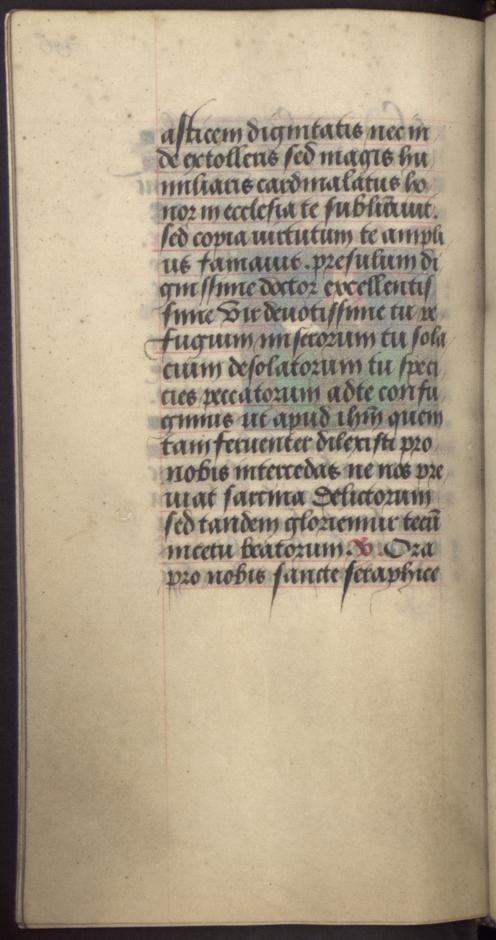 asticem dignitatis nec in
de extolleris sed magis hu
miliaris cardinalatus ho
nor in ecclesia te sublimavit.
sed copia virtutum te ampli
us famavit. presulum di
gnissime doctor excellentis
sime Vir devotissime tu re
fugium miserorum tu sola
cium desolatorum tu speci
cies peccatorum ad te confu
gimus ut apud ihm quem
tam ferventer dilexisti pro
nobis intercedas ne nos pre
mat sarcina delictorum
sed tandem gloriemur tecū
in cetu beatorum. V. Ora
pro nobis sancte seraphice